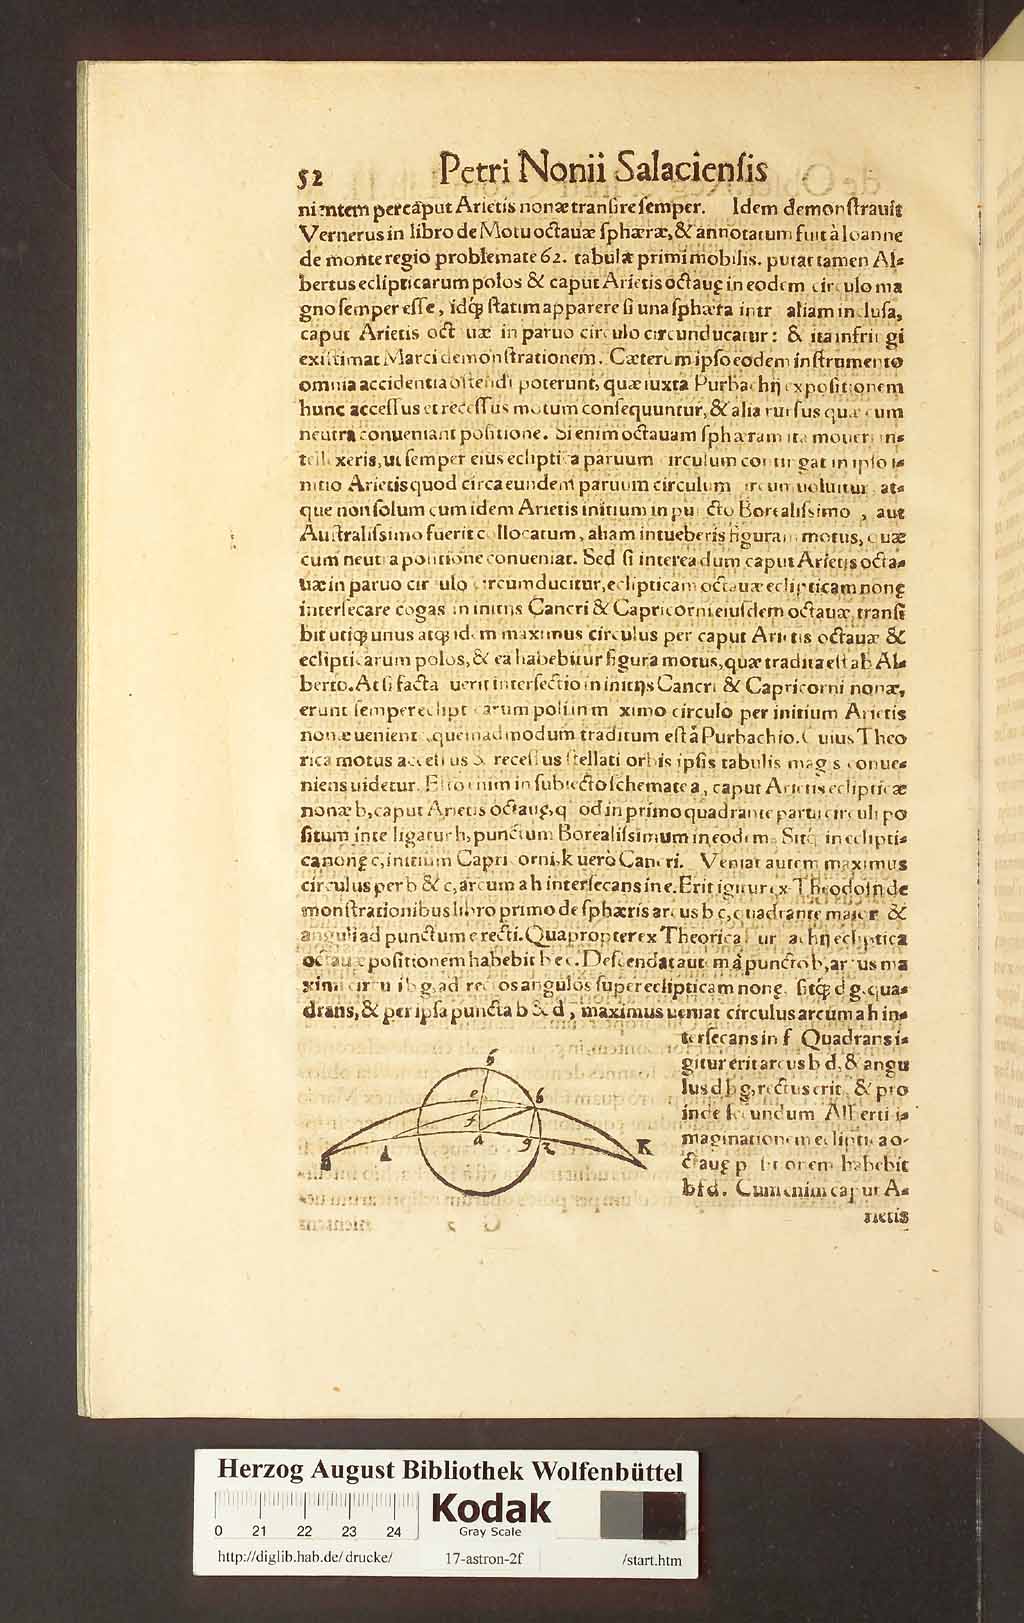 52 Petri Nonii Salaciensis
nientem per caput Arietis nonæ transire semper. Idem demonstrauit
Vernerus in libro de Motu octauæ sphæræ, & annotatum fuit à Ioanne
de monte regio problemate 62. tabulæ primi mobilis. putat tamen Al=
bertus eclipticarum polos & caput Arietis octauę in eodem circulo ma
gno semper esse, idq; statim apparere si una sphæra intra aliam inclusa,
caput Arietis octauæ in paruo circulo circunducatur: & ita infringi
existimat Marci demonstrationem. Cæterum ipso eodem instrumento
omnia accidentia ostendi poterunt, quæ iuxta Purbachij expositionem
hunc accessus et recessus motum consequuntur, & alia rursus quæ cum
neutra conueniant positione. Si enim octauam sphæram ita moueri in=
tellexeris, ut semper eius ecliptica paruum circulum contingat in ipso i=
nitio Arietis quod circa eundem paruum circulum circunuoluitur, at=
que non solum cum idem Arietis initium in puncto Borealissimo, aut
Australissimo fuerit collocatum, aliam intueberis figuram motus, quæ
cum neutra positione conueniat. Sed si interea dum caput Arietis octa=
uæ in paruo circulo circumducitur, eclipticam octauæ eclipticam nonę
intersecare cogas in initijs Cancri & Capricorni eiusdem octauæ, transi
bit utiq; unus atq; idem maximus circulus per caput Arietis octauæ &
eclipticarum polos, & ea habebitur figura motus, quæ tradita est ab Al=
berto. At si facta fuerit intersectio in initijs Cancri & Capricorni nonæ,
erunt semper eclipticarum poli in maximo circulo per initium Arietis
nonæ ueniente, quemadmodum traditum est à Purbachio. Cuius Theo
rica motus accessus & recessus stellati orbis ipsis tabulis magis conue=
niens uidetur. Esto enim in subiecto schemate a, caput Arietis eclipticæ
nonæ b, caput Arietis octauę, quod in primo quadrante parui circuli po
situm intelligatur h, punctum Borealissimum in eodem. Sitq; in eclipti=
ca nonę c, initium Capricorni, k uerò Cancri. Veniat autem maximus
circulus per b & c, arcum a h intersecans in e. Erit igitur ex Theodosij de
monstrationibus libro primo de sphæris arcus b c, quadrante maior &
anguli ad punctum e recti. Quapropter ex Theorica Purbachij ecliptica
octauæ positionem habebit b e c. Descendat autem à puncto b, arcus ma
ximi circuli b g, ad rectos angulos super eclipticam nonę, sitq; d g, qua=
drans, & per ipsa puncta b & d, maximus ueniat circulus arcum a h in=
tersecans in f. Quadrans i=
gitur erit arcus b d, & angu
lus d b g, rectus erit, & pro
inde secundum Alberti i=
maginationem ecliptica o=
ctauę positionem habebit
b f d. Cum enim caput A=
rietis
h
e
b
f
a
g
z
d
K
Herzog August Bibliothek Wolfenbüttel
Kodak
Gray Scale
0 21 22 23 24
http://diglib.hab.de/drucke/ 17-astron-2f /start.htm